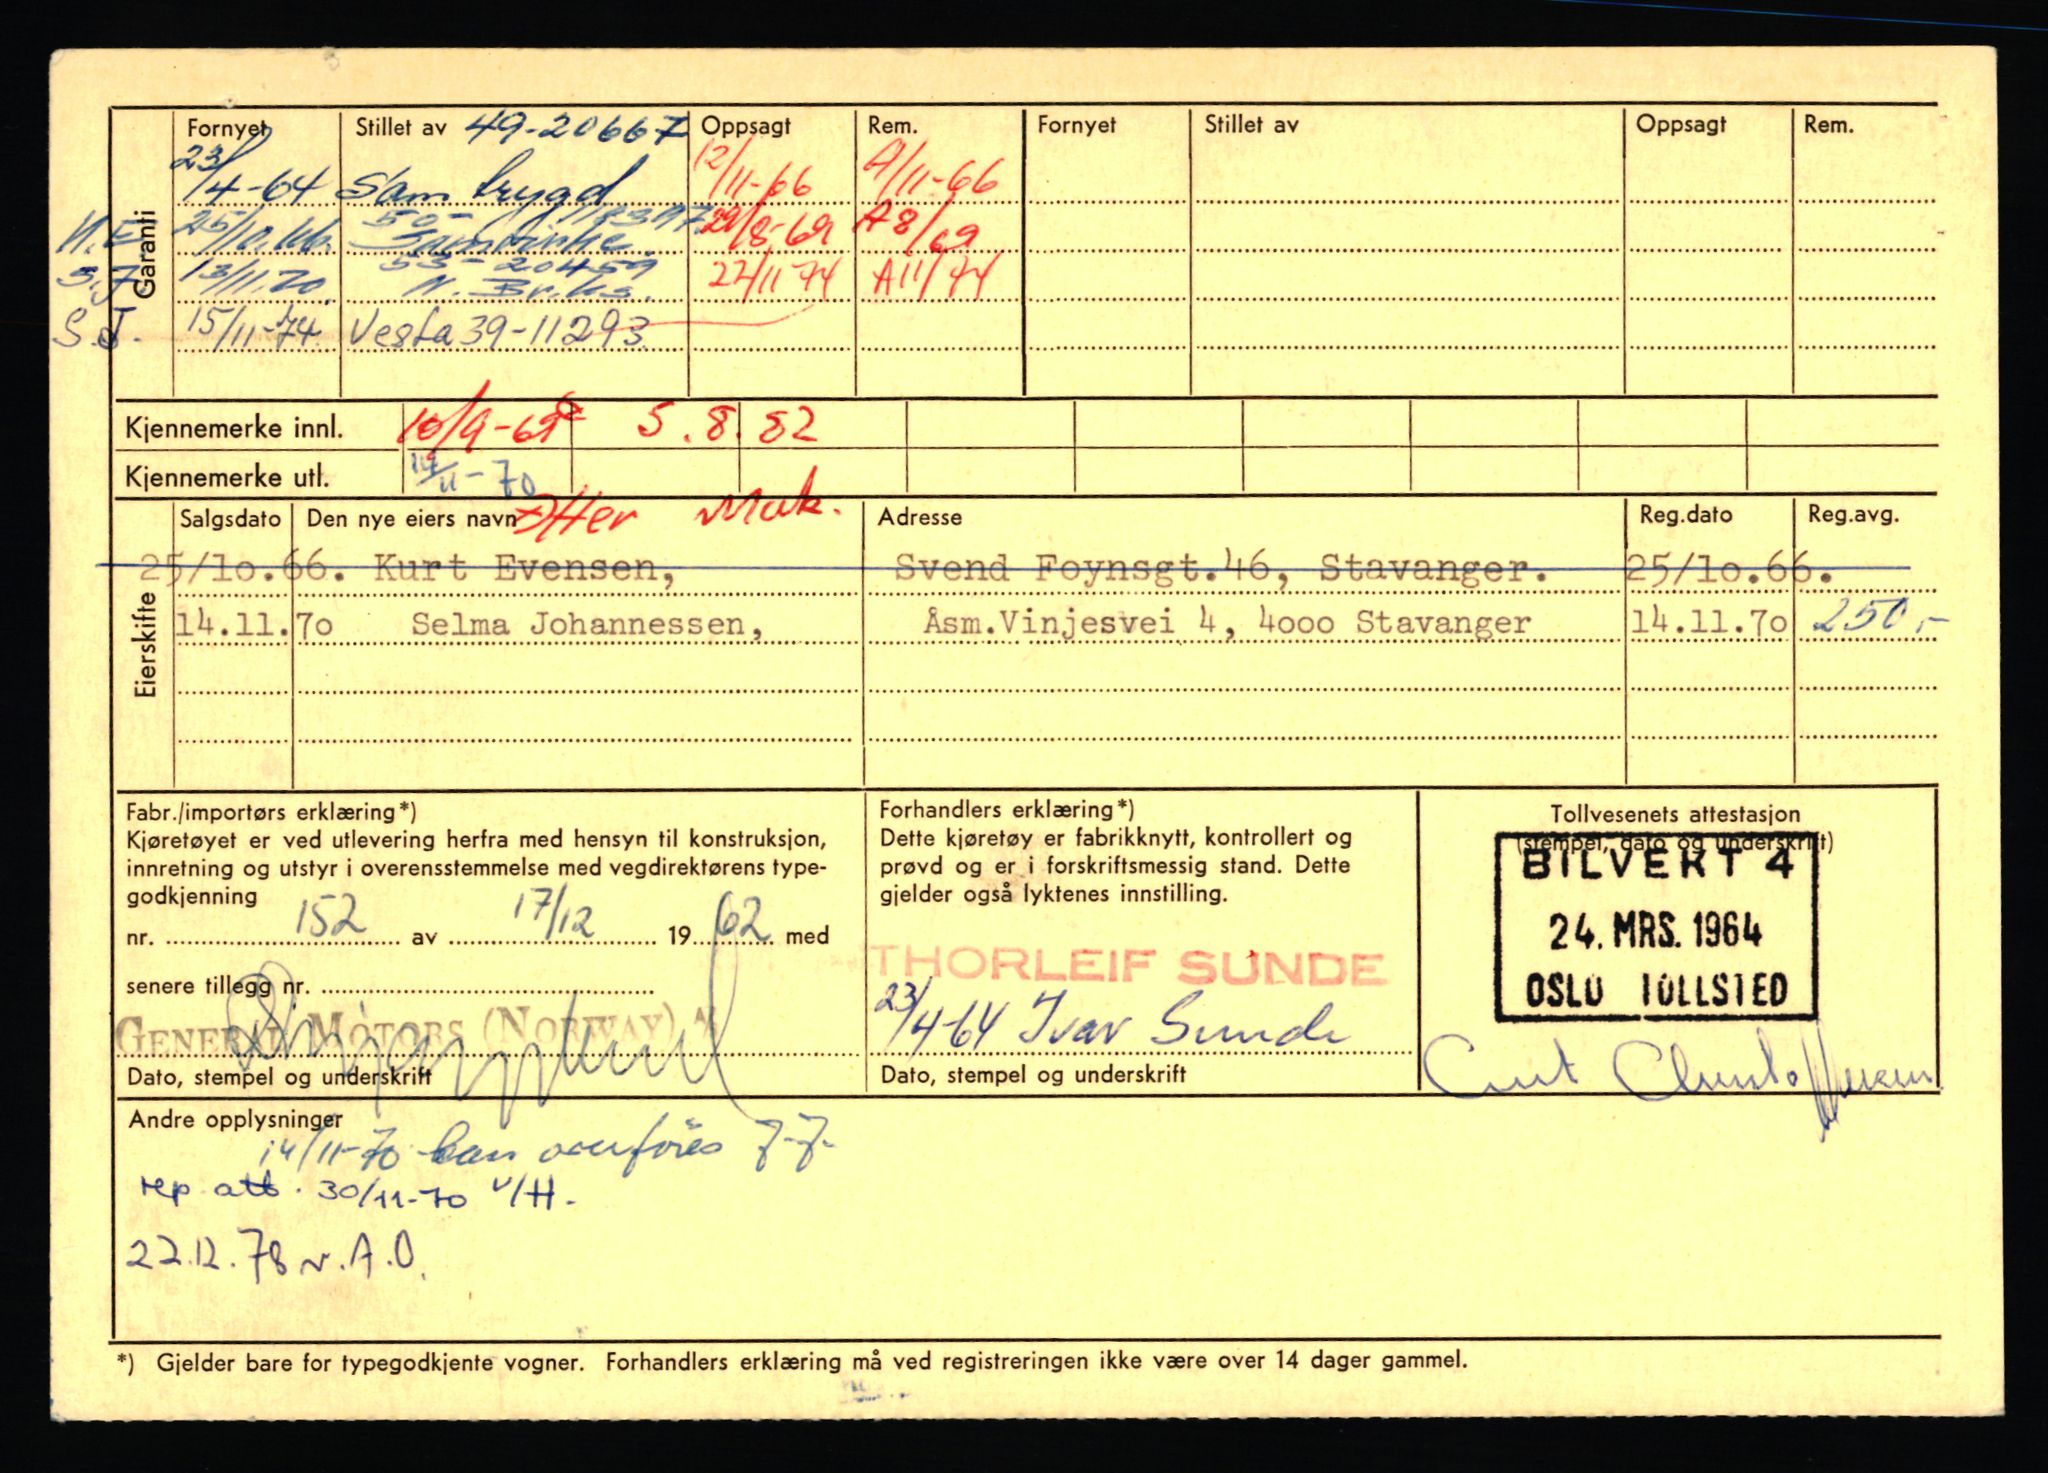 Garanti
Fornyet Stillet av 49-20667 Oppsagt Rem. Fornyet Stillet av Oppsagt Rem.
23/4-64 Sambygd 12/11-66 A/11-66
K.E. 25/10.66. 50- 29/8-69 A8/69
S.J. 13/11.70. 55-20459 22/11 74 A11/74
N. Br.ks.
S.J. 15/11-74 Vesta 39-11293
Kjennemerke innl. 10/9-69 5.8.82
Kjennemerke utl. 14/11-70
Etter Mak.
Eierskifte
Salgsdato Den nye eiers navn Adresse Reg.dato Reg.avg.
25/10.66. Kurt Evensen, Svend Foynsgt.46, Stavanger. 25/10.66.
14.11.70 Selma Johannessen, Åsm.Vinjesvei 4, 4000 Stavanger 14.11.70 250,-
Fabr./importørs erklæring*)
Kjøretøyet er ved utlevering herfra med hensyn til konstruksjon,
innretning og utstyr i overensstemmelse med vegdirektørens type-
godkjenning
nr. 152 av 17/12 1962 med
senere tillegg nr.
GENERAL MOTORS (NORWAY) A/S
Dato, stempel og underskrift
Forhandlers erklæring*)
Dette kjøretøy er fabrikknytt, kontrollert og
prøvd og er i forskriftsmessig stand. Dette
gjelder også lyktenes innstilling.
THORLEIF SUNDE
23/4-64 Ivar Sunde
Dato, stempel og underskrift
Tollvesenets attestasjon
(stempel, dato og underskrift)
BILVEKT 4
24. MRS. 1964
OSLO TOLLSTED
Curt Christoffersen
Andre opplysninger
14/11-70 kan overføres J.J.
rep att. 30/11-70 v/H.
22.12.78 v. A.O.
*) Gjelder bare for typegodkjente vogner. Forhandlers erklæring må ved registreringen ikke være over 14 dager gammel.